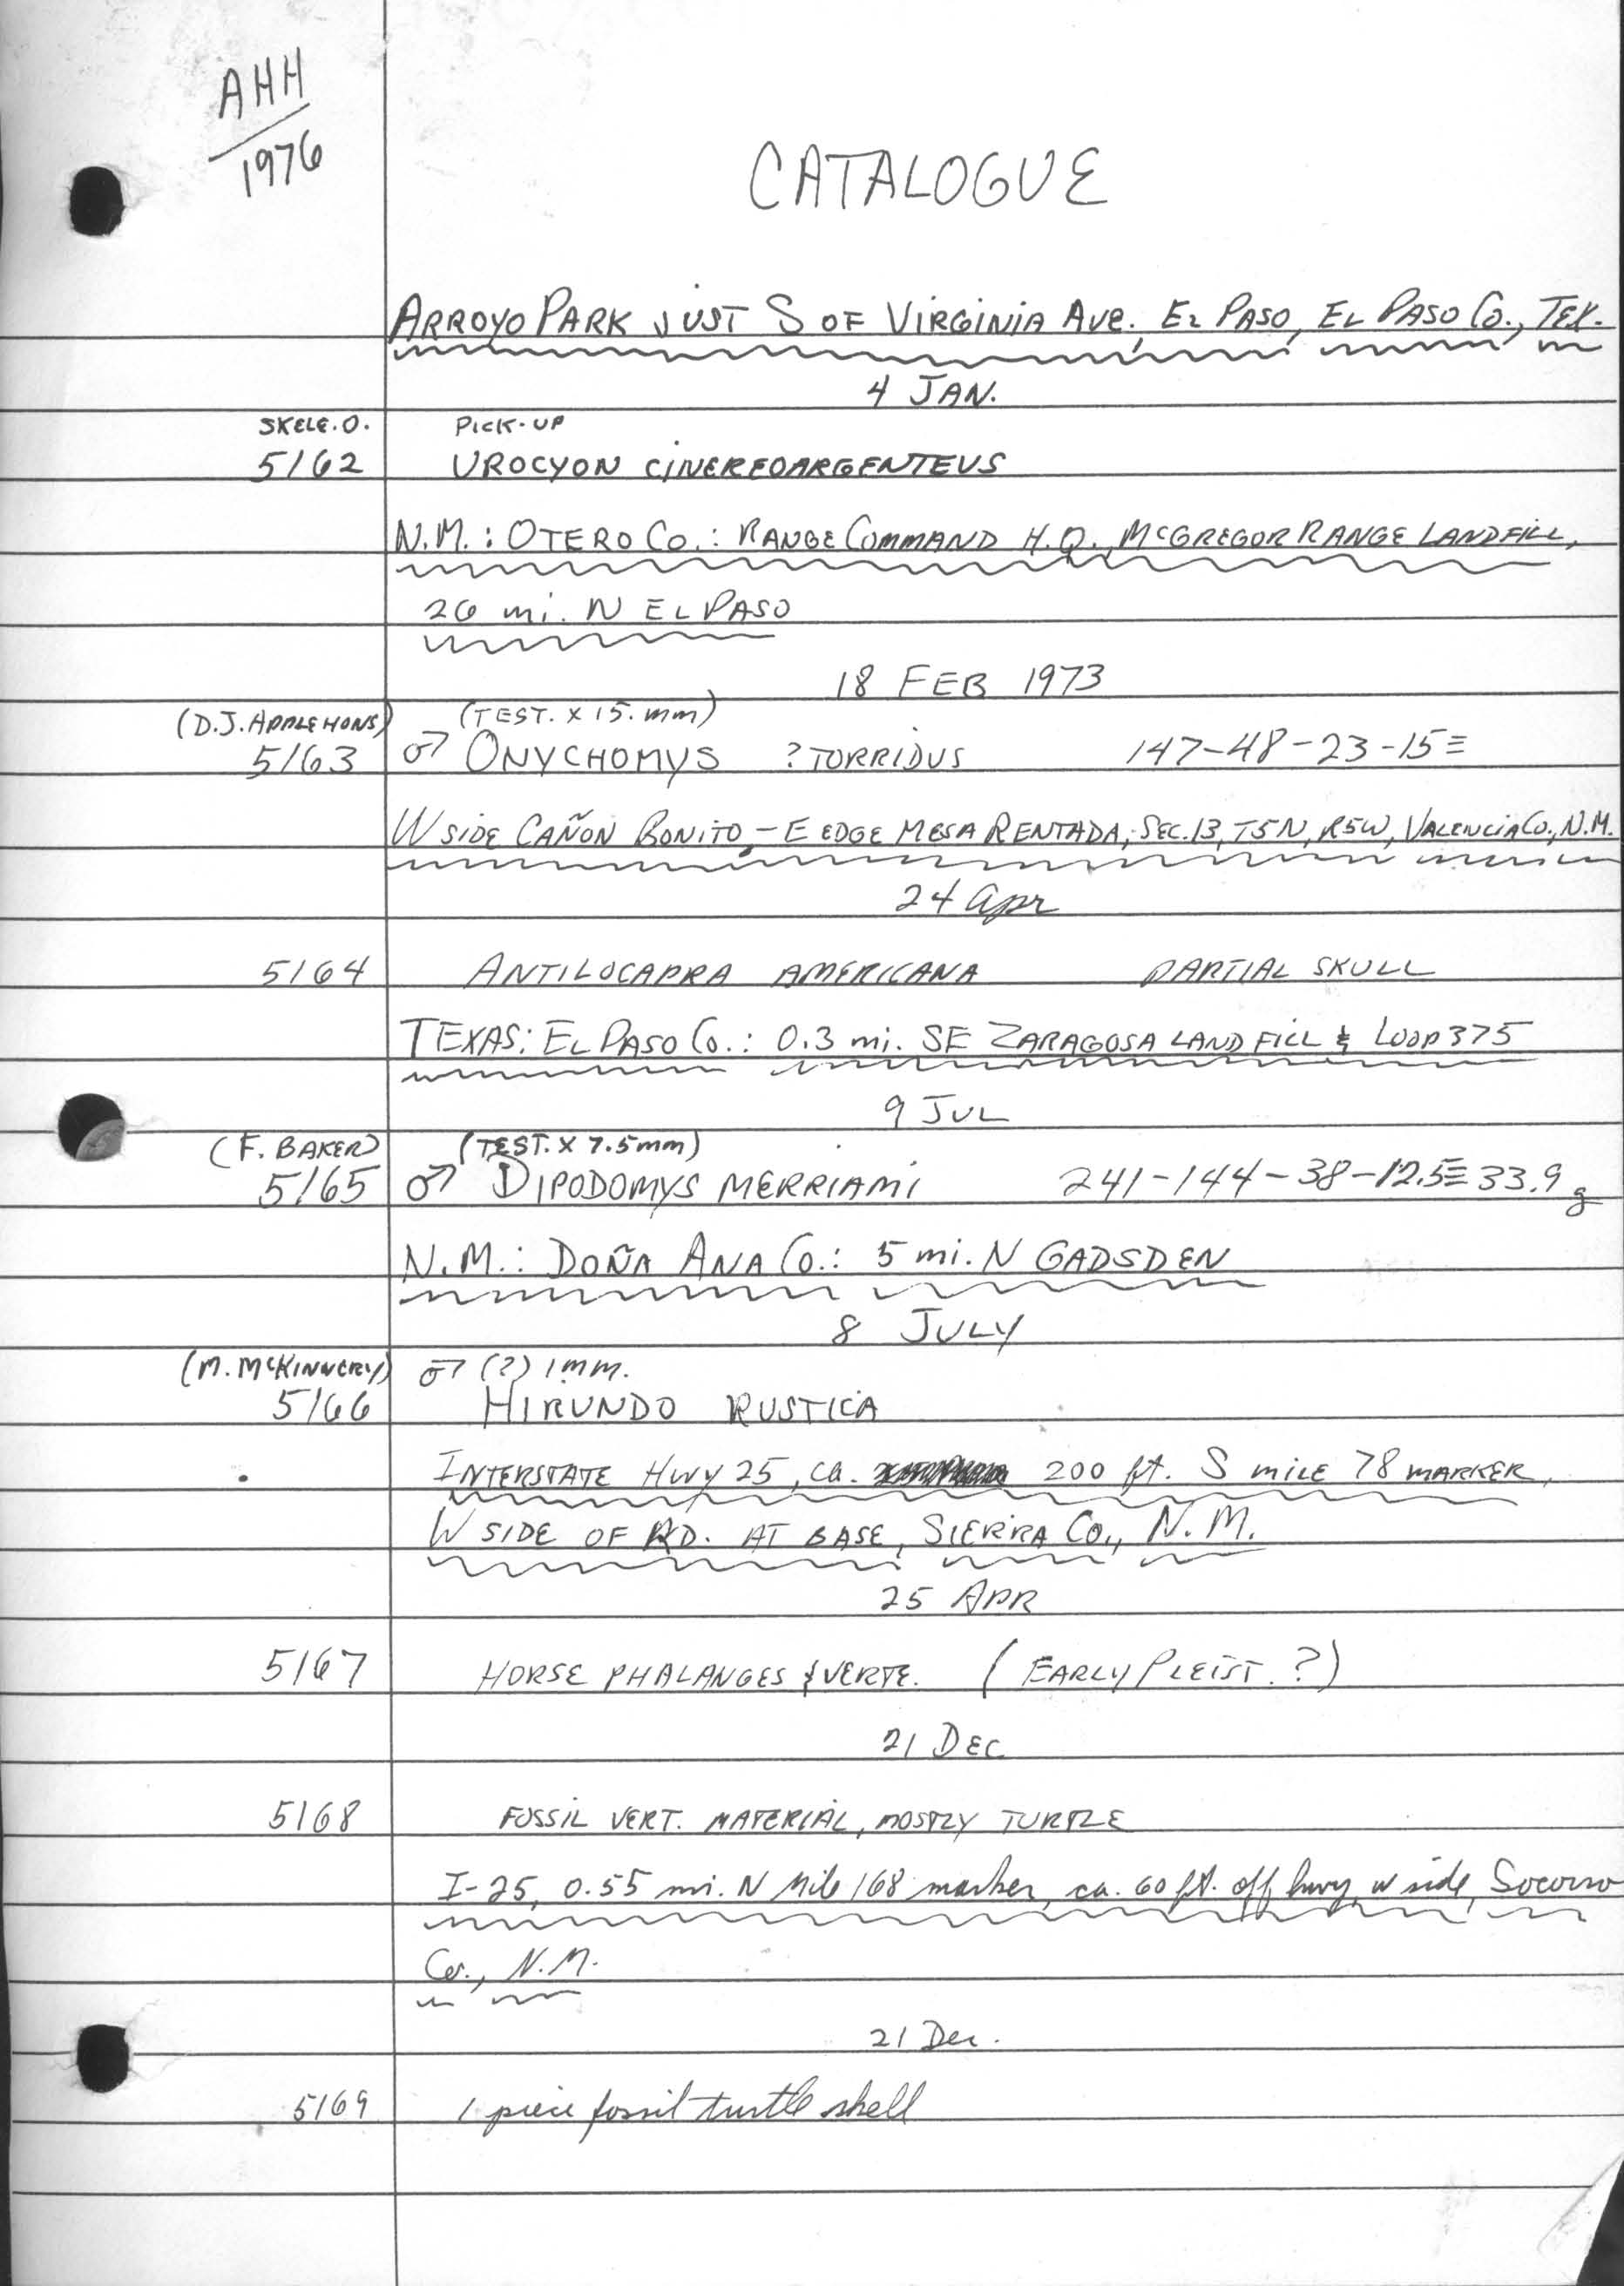 AHH
1976
CATALOGUE
ARROYO PARK JUST S OF VIRGINIA AVE., EL PASO, EL PASO CO., TEX.
4 JAN.
SKELE. O. PICK-UP
5162 UROCYON CINEREOARGENTEUS
N.M.: OTERO CO.: RANGE COMMAND H.Q., McGREGOR RANGE LANDFILL,
26 mi. N EL PASO
18 FEB 1973
(D.J. APPLEHONS) (TEST. X 15. mm)
5163 ♂ ONYCHOMYS ? TORRIDUS 147-48-23-15≡
W SIDE CAÑON BONITO, - E EDGE MESA RENTADA, SEC. 13, T5N, R5W, VALENCIA CO., N.M.
24 Apr
5164 ANTILOCAPRA AMERICANA PARTIAL SKULL
TEXAS: EL PASO CO.: 0.3 mi. SE ZARAGOSA LAND FILL & LOOP 375
9 JUL
(F. BAKER) (TEST. X 7.5 mm)
5165 ♂ DIPODOMYS MERRIAMI 241-144-38-12.5≡ 33.9 g
N.M.: DOÑA ANA CO.: 5 mi. N GADSDEN
8 JULY
(M. McKINNERY) ♂ (?) 1 mm.
5166 HIRUNDO RUSTICA
INTERSTATE HWY 25, ca. 200 ft. S MILE 78 MARKER,
W SIDE OF RD. AT BASE, SIERRA CO., N.M.
25 APR
5167 HORSE PHALANGES & VERTE. (EARLY PLEIST. ?)
21 DEC
5168 FOSSIL VERT. MATERIAL, MOSTLY TURTLE
I-25, 0.55 mi. N Mile 168 marker, ca. 60 ft. off hwy, w side, Socorro
Co., N.M.
21 Dec.
5169 1 piece fossil turtle shell